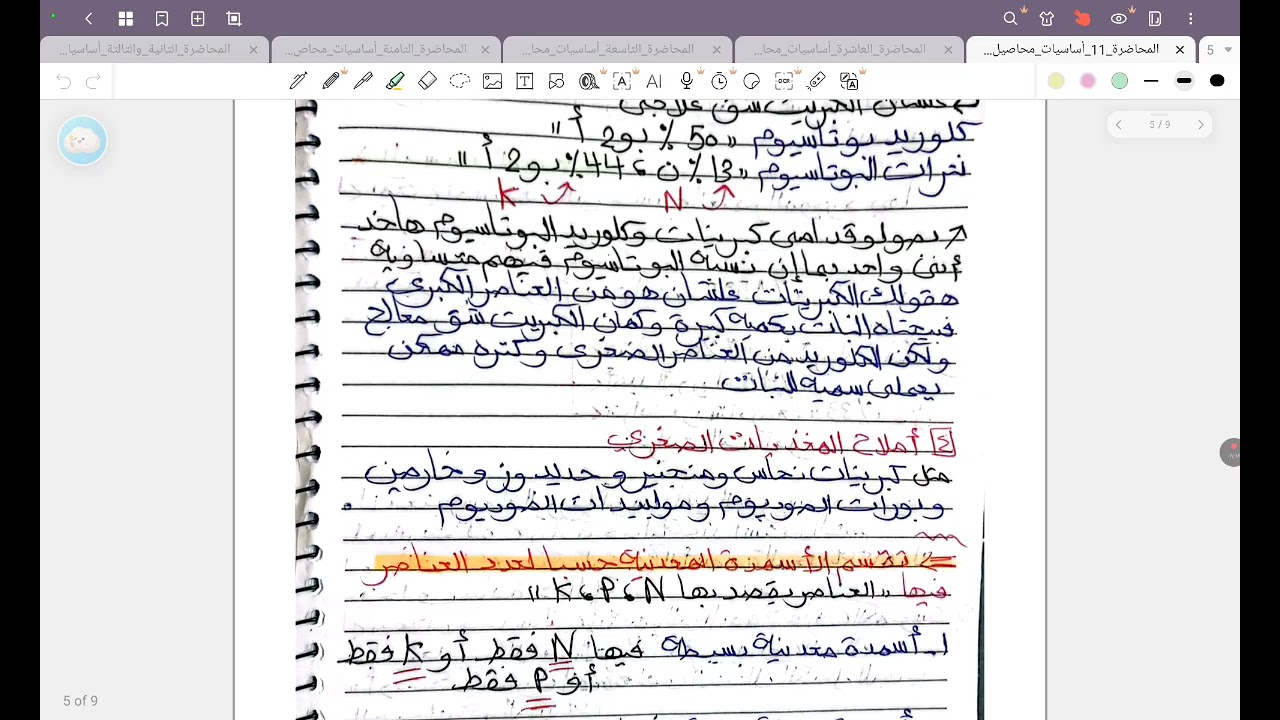 المحاضرة_الثانية_والثالثة_أساسيا...
المحاضرة_الثامنة_أساسيات_محاص...
المحاضرة_التاسعة_أساسيات_محا...
المحاضرة_العاشرة_أساسيات_محا...
المحاضرة_11_أساسيات_محاصيل...
5
5 / 9
الكبريت شق علاجى
كلوريد بوتاسيوم "50 % بو2 أ"
نترات البوتاسيوم "13% ن ، 44% بو2 أ"
K N
ولو قدامى كبريتات وكلوريد البوتاسيوم هاخد
أنهى واحد بما إن نسبة البوتاسيوم فيهم متساوية
هقولك الكبريتات علشان هو من العناصر الكبرى
فبيحتاه النبات بكمية كبيرة وكمان الكبريت شق معالج
ولكن الكلوريد من العناصر الصغرى وكتره ممكن
يعملى سمية للنبات
4 أملاح المغذيات الصغرى
مثل كبريتات نحاس ومنجنيز وحديد وز وخارصين
وبورات الصوديوم وموليبدات الصوديوم
<= تقسم الأسمدة المعدنية حسبا لعدد العناصر
فيها "العناصر يقصد بها N ، P ، K"
1- أسمدة معدنية بسيطة فيها N فقط أو K فقط
أو P فقط
5 of 9